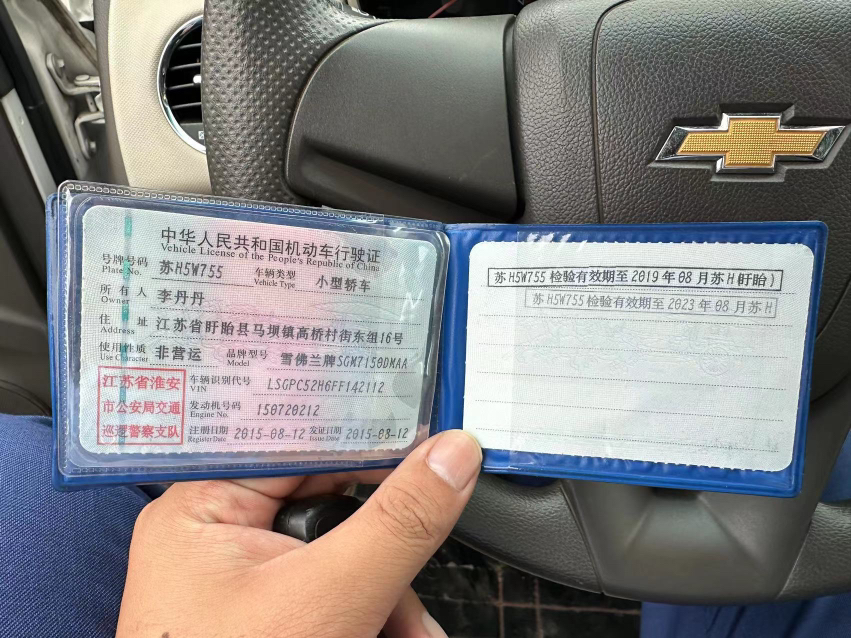 中华人民共和国机动车行驶证
Vehicle License of the People's Republic of China
号牌号码 苏H5W755 车辆类型 小型轿车
Plate No. Vehicle Type
所有人 李丹丹
Owner
住址 江苏省盱眙县马坝镇高桥村街东组16号
Address
使用性质 非营运 品牌型号 雪佛兰牌SGM7150DMAA
Use Character Model
江苏省淮安
市公安局交通
巡逻警察支队
车辆识别代号 LSGPC52H6FF142112
VIN
发动机号码 150720212
Engine No.
注册日期 2015-08-12 发证日期 2015-08-12
Register Date Issue Date
苏H5W755 检验有效期至 2019年08月苏H(盱眙)
苏H5W755 检验有效期至 2023年08月苏H